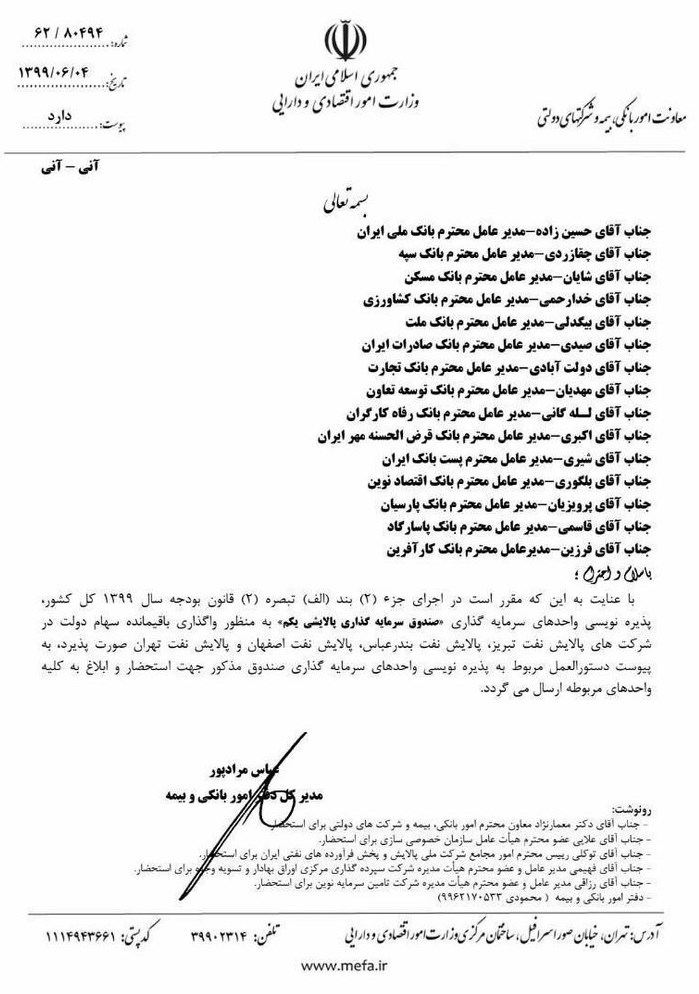 شماره: ۶۲ / ۸۰۴۹۴
تاریخ: ۱۳۹۹/۰۶/۰۴
پیوست: دارد
جمهوری اسلامی ایران
وزارت امور اقتصادی و دارایی
معاونت امور بانکی، بیمه و شرکتهای دولتی
آنی – آنی
بسمه تعالی
جناب آقای حسین زاده–مدیر عامل محترم بانک ملی ایران
جناب آقای چقازردی–مدیر عامل محترم بانک سپه
جناب آقای شایان–مدیر عامل محترم بانک مسکن
جناب آقای خدارحمی–مدیر عامل محترم بانک کشاورزی
جناب آقای بیگدلی–مدیر عامل محترم بانک ملت
جناب آقای صیدی–مدیر عامل محترم بانک صادرات ایران
جناب آقای دولت آبادی–مدیر عامل محترم بانک تجارت
جناب آقای مهدیان–مدیر عامل محترم بانک توسعه تعاون
جناب آقای لـله گانی–مدیر عامل محترم بانک رفاه کارگران
جناب آقای اکبری–مدیر عامل محترم بانک قرض الحسنه مهر ایران
جناب آقای شیری–مدیر عامل محترم پست بانک ایران
جناب آقای بلگوری–مدیر عامل محترم بانک اقتصاد نوین
جناب آقای پرویزیان–مدیر عامل محترم بانک پارسیان
جناب آقای قاسمی–مدیر عامل محترم بانک پاسارگاد
جناب آقای فرزین–مدیرعامل محترم بانک کارآفرین
باسلام و احترام ؛
با عنایت به این که مقرر است در اجرای جزء (۲) بند (الف) تبصره (۲) قانون بودجه سال ۱۳۹۹ کل کشور،
پذیره نویسی واحدهای سرمایه گذاری «صندوق سرمایه گذاری پالایشی یکم» به منظور واگذاری باقیمانده سهام دولت در
شرکت های پالایش نفت تبریز، پالایش نفت بندرعباس، پالایش نفت اصفهان و پالایش نفت تهران صورت پذیرد، به
پیوست دستورالعمل مربوط به پذیره نویسی واحدهای سرمایه گذاری صندوق مذکور جهت استحضار و ابلاغ به کلیه
واحدهای مربوطه ارسال می گردد.
عباس مرادپور
مدیر کل دفتر امور بانکی و بیمه
رونوشت:
- جناب آقای دکتر معمارنژاد معاون محترم امور بانکی، بیمه و شرکت های دولتی برای استحضار.
- جناب آقای علایی عضو محترم هیأت عامل سازمان خصوصی سازی برای استحضار.
- جناب آقای توکلی رییس محترم امور مجامع شرکت ملی پالایش و پخش فرآورده های نفتی ایران برای استحضار.
- جناب آقای فهیمی مدیر عامل و عضو محترم هیأت مدیره شرکت سپرده گذاری مرکزی اوراق بهادار و تسویه وجوه برای استحضار.
- جناب آقای رزاقی مدیر عامل و عضو محترم هیأت مدیره شرکت تامین سرمایه نوین برای استحضار.
- دفتر امور بانکی و بیمه ( محمودی ۹۹۶۲۱۷۰۵۳۳)
آدرس: تهران، خیابان صوراسرافیل، ساختمان مرکزی وزارت امور اقتصادی و دارایی تلفن: ۳۹۹۰۲۳۱۴ کدپستی: ۱۱۱۴۹۴۳۶۶۱
www.mefa.ir